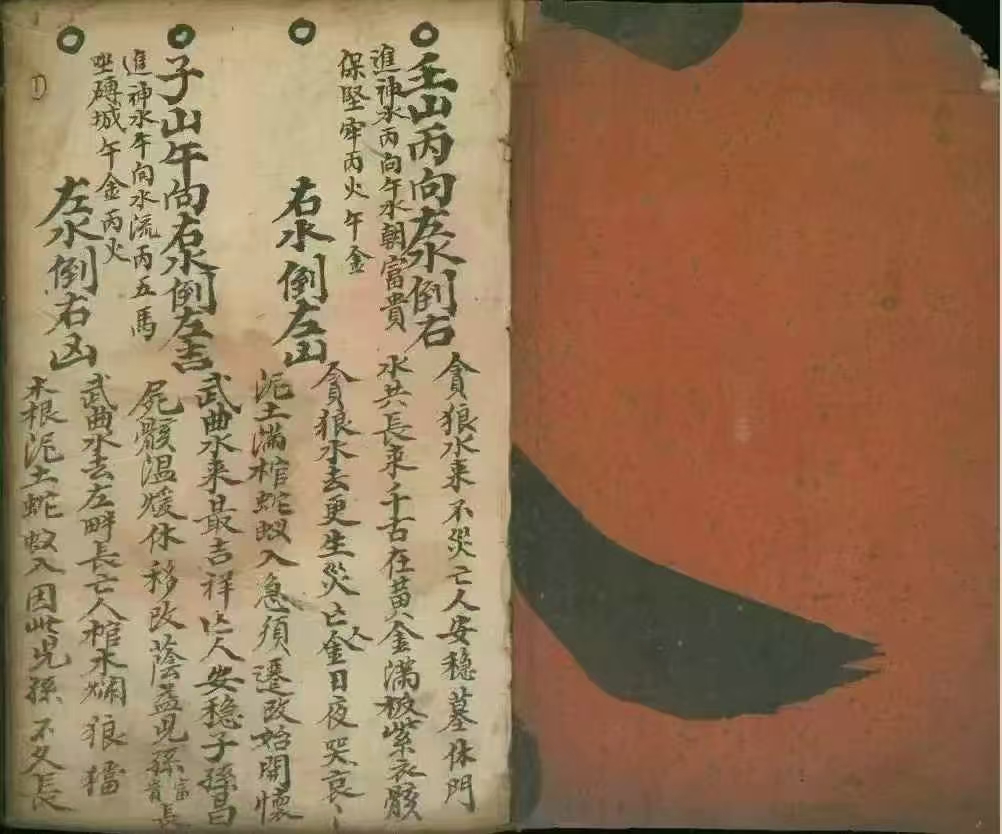 壬山丙向左水倒右
進神水丙向午水朝富貴
保堅牢丙火午金
貪狼水来不災亡人安穩墓休門
水共長来千古在黄金滿板紫衣骸
右水倒左凶
貪狼水去更生災亡人金日夜哭哀々
泥土滿棺蛇蚁入急須遷改始開懷
子山午向右水倒左吉
進神水午向水流丙五馬
坐磚城午金丙火
武曲水来最吉祥亡人安穩子孫昌
屍骸温煖休移改蔭益児孫富貴長
左水倒右凶
武曲水去左畔長亡人棺水爛狼
木根泥土蛇蚁入因此児孫不久長